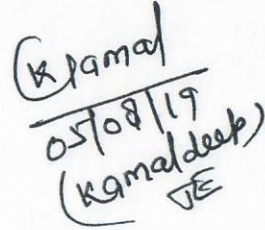 Kamal
05/08/19
(Kamaldeep)
JE